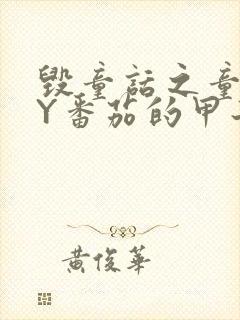 毁童话之童
Y番茄的甲
黄俊华